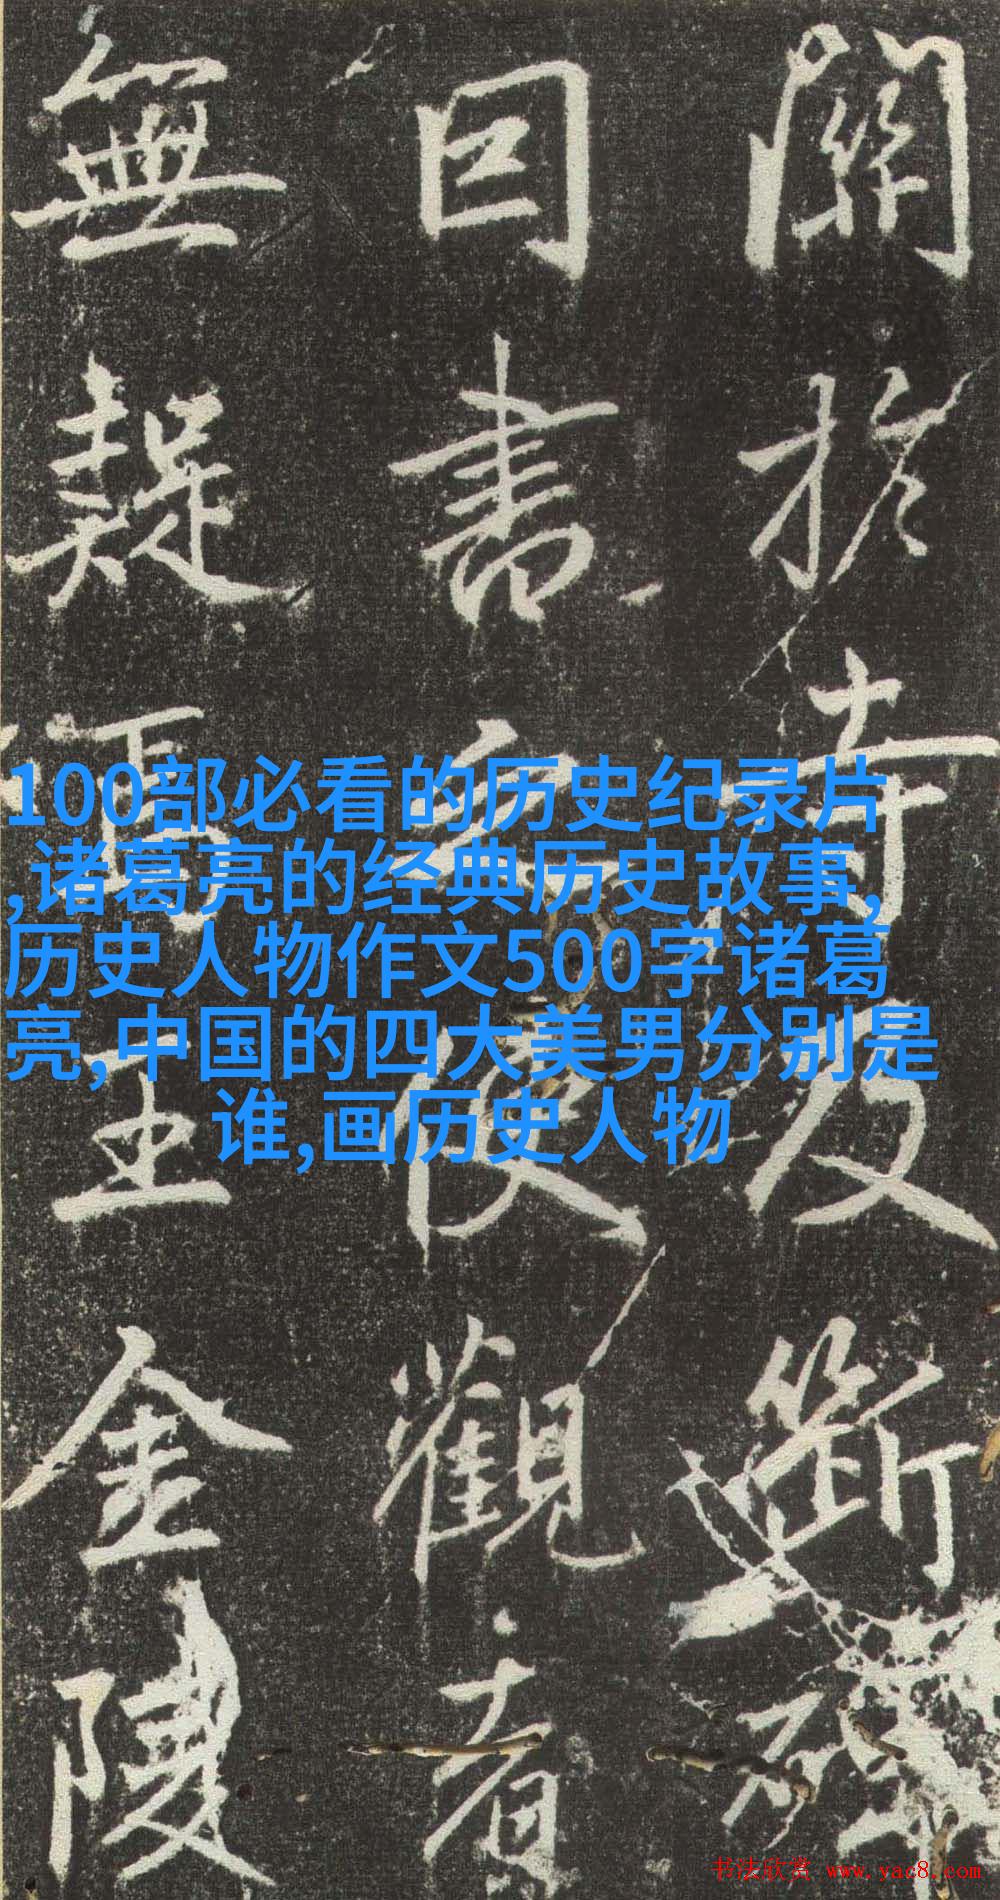 關扵寺及斷
書觀者
無疑焉王金陵
100部必看的历史纪录片
,诸葛亮的经典历史故事,
历史人物作文500字诸葛
亮,中国的四大美男分别是
谁,画历史人物
书法欣赏 www.yac8.com